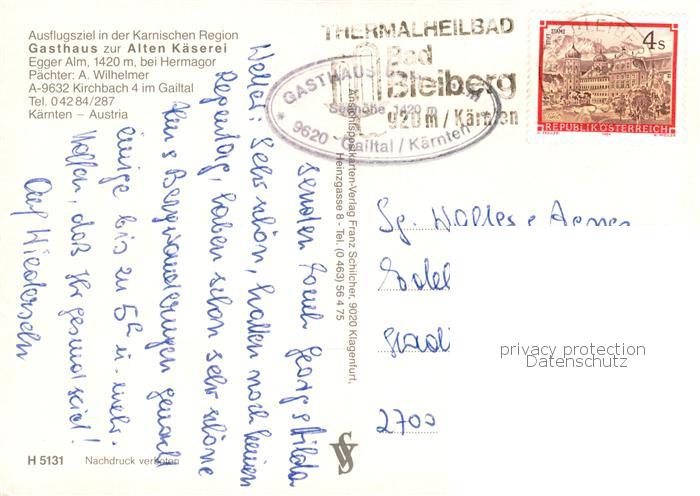 Ausflugsziel in der Karnischen Region
Gasthaus zur Alten Käserei
Egger Alm, 1420 m, bei Hermagor
Pächter: A. Wilhelmer
A-9632 Kirchbach 4 im Gailtal
Tel. 0 42 84/287
Kärnten – Austria
THERMALHEILBAD
Bad
Bleiberg
920 m / Kärnten
GASTHAUS
Seehöhe 1420 m
* 9620 - Gailtal / Kärnten
STIFT STAMS
4 S
REPUBLIK ÖSTERREICH
Wetter: Sehr schön, hatten noch keinen
Regentag, haben schon sehr schöne
Bergwanderungen gemacht
einige bis zu 5h u. mehr.
Hoffen, daß Ihr gesund seid!
Auf Wiedersehn
senden Euch Georg + Hilda
Ansichtspostkarten-Verlag Franz Schilcher, 9020 Klagenfurt,
Heinzgasse 8 - Tel. (0 463) 56 4 75
2700
privacy protection
Datenschutz
H 5131 Nachdruck verboten